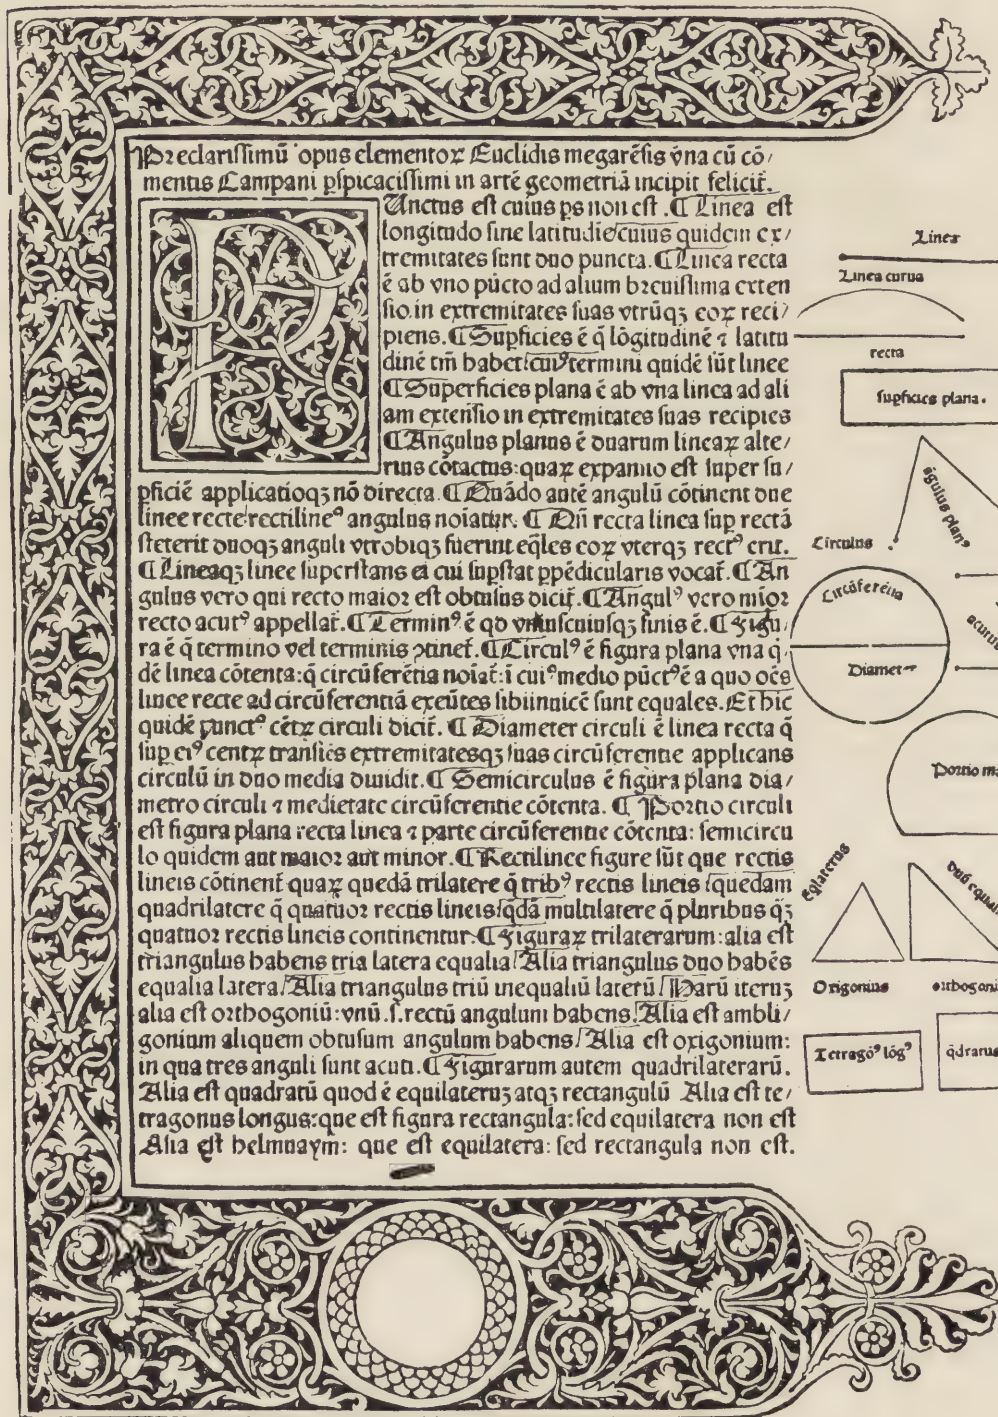 Preclarissimū opus elementoꝝ Euclidis megarēsis vna cū cō/
mentis Campani ꝑspicacissimi in artē geometriā incipit felicit̄.
Unctus est cuius ps non est. ¶ Linea est
longitudo sine latitudie/cuius quidem ex/
tremitates sunt duo puncta. ¶ Linea recta
ē ab vno pūcto ad alium breuissima exten
sio in extremitates suas vtrūqꝫ eoꝝ reci/
piens. ¶ Supficies ē q̄ lōgitudinē ⁊ latitu
dinē tm̄ habet: cuiꝰ termini quidē sūt linee
¶ Superficies plana ē ab vna linea ad ali
am extensio in extremitates suas recipiēs
¶ Angulus planus ē duarum lineaꝝ alte/
rius cōtactus: quaꝝ expansio est super su/
ꝑficiē applicatioqꝫ nō directa. ¶ Quādo autē angulū cōtinent due
linee recte rectilineꝰ angulus noiatur. ¶ Qn̄ recta linea sup rectā
steterit duoqꝫ anguli vtrobiqꝫ fuerint eq̄les eoꝝ vterqꝫ rectꝰ erit.
¶ Lineaqꝫ linee superstans ei cui supstat ppēdicularis vocat̄. ¶ An
gulus vero qui recto maior est obtusus dicit̄. ¶ Angulꝰ vero mīor
recto acutꝰ appellat̄. ¶ Terminꝰ ē qd vniuscuiusqꝫ finis ē. ¶ Figu/
ra ē q̄ termino vel terminis ꝯtinet̄. ¶ Circulꝰ ē figura plana vna q̄/
dē linea cōtenta: q̄ circūferētia noiat̄: ī cuiꝰ medio pūctꝰ ē a quo oēs
linee recte ad circūferentiā exeūtes sibiinuicē sunt equales. Et hic
quidē punctꝰ cētꝝ circuli dicit̄. ¶ Diameter circuli ē linea recta q̄
sup eiꝰ centꝝ transiēs extremitatesqꝫ suas circūferentie applicans
circulū in duo media diuidit. ¶ Semicirculus ē figura plana dia/
metro circuli ⁊ medietate circūferentie cōtenta. ¶ Portio circuli
est figura plana recta linea ⁊ parte circūferentie cōtenta: semicircu
lo quidem aut maior aut minor. ¶ Rectilinee figure sūt que rectis
lineis cōtinent̄ quaꝝ quedā trilatere q̄ tribꝰ rectis lineis/quedam
quadrilatere q̄ quatuor rectis lineis/qdā multilatere q̄ pluribus qꝫ
quatuor rectis lineis continentur. ¶ Figuraꝝ trilaterarum: alia est
triangulus habens tria latera equalia/Alia triangulus duo habēs
equalia latera/Alia triangulus triū inequaliū laterū/Harū iteruꝫ
alia est orthogoniū: vnū .s. rectū angulum habens. Alia est ambli/
gonium aliquem obtusum angulum habens/Alia est oxigonium:
in qua tres anguli sunt acuti. ¶ Figurarum autem quadrilaterarū.
Alia est quadratū quod ē equilateruꝫ atqꝫ rectangulū Alia est te/
tragonus longus: que est figura rectangula: sed equilatera non est
Alia est helmuaym: que est equilatera: sed rectangula non est.
Linea
Linea curua
recta
supficies plana.
āgulus planꝰ
Circulus
Circūferētia
Diameter
Portio ma
Eqlaterus
duū equali
Oxigonius
orthogoni
Tetragōꝰ lōgꝰ
q̄dratus